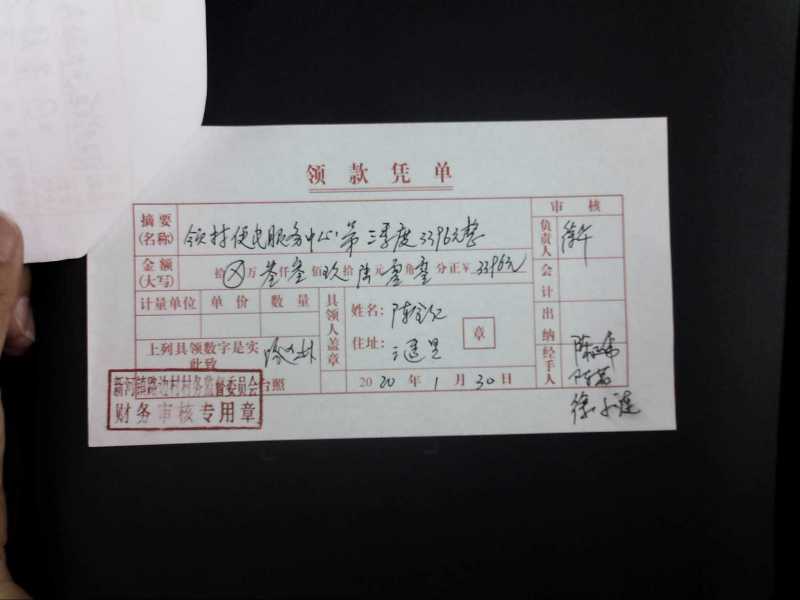 领款凭单
审核
摘要(名称) 领村便民服务中心第三季度3396元整
负责人
金额(大写) 拾⊗万叁仟叁佰玖拾陆元零角零分正¥3396元
会计
计量单位 单价 数量
具领人盖章
姓名:陈
章
住址:
出纳
上列具领数字是实
此致
台照
2020年1月30日
经手人
新河镇路边村村务监督委员会
财务审核专用章
徐